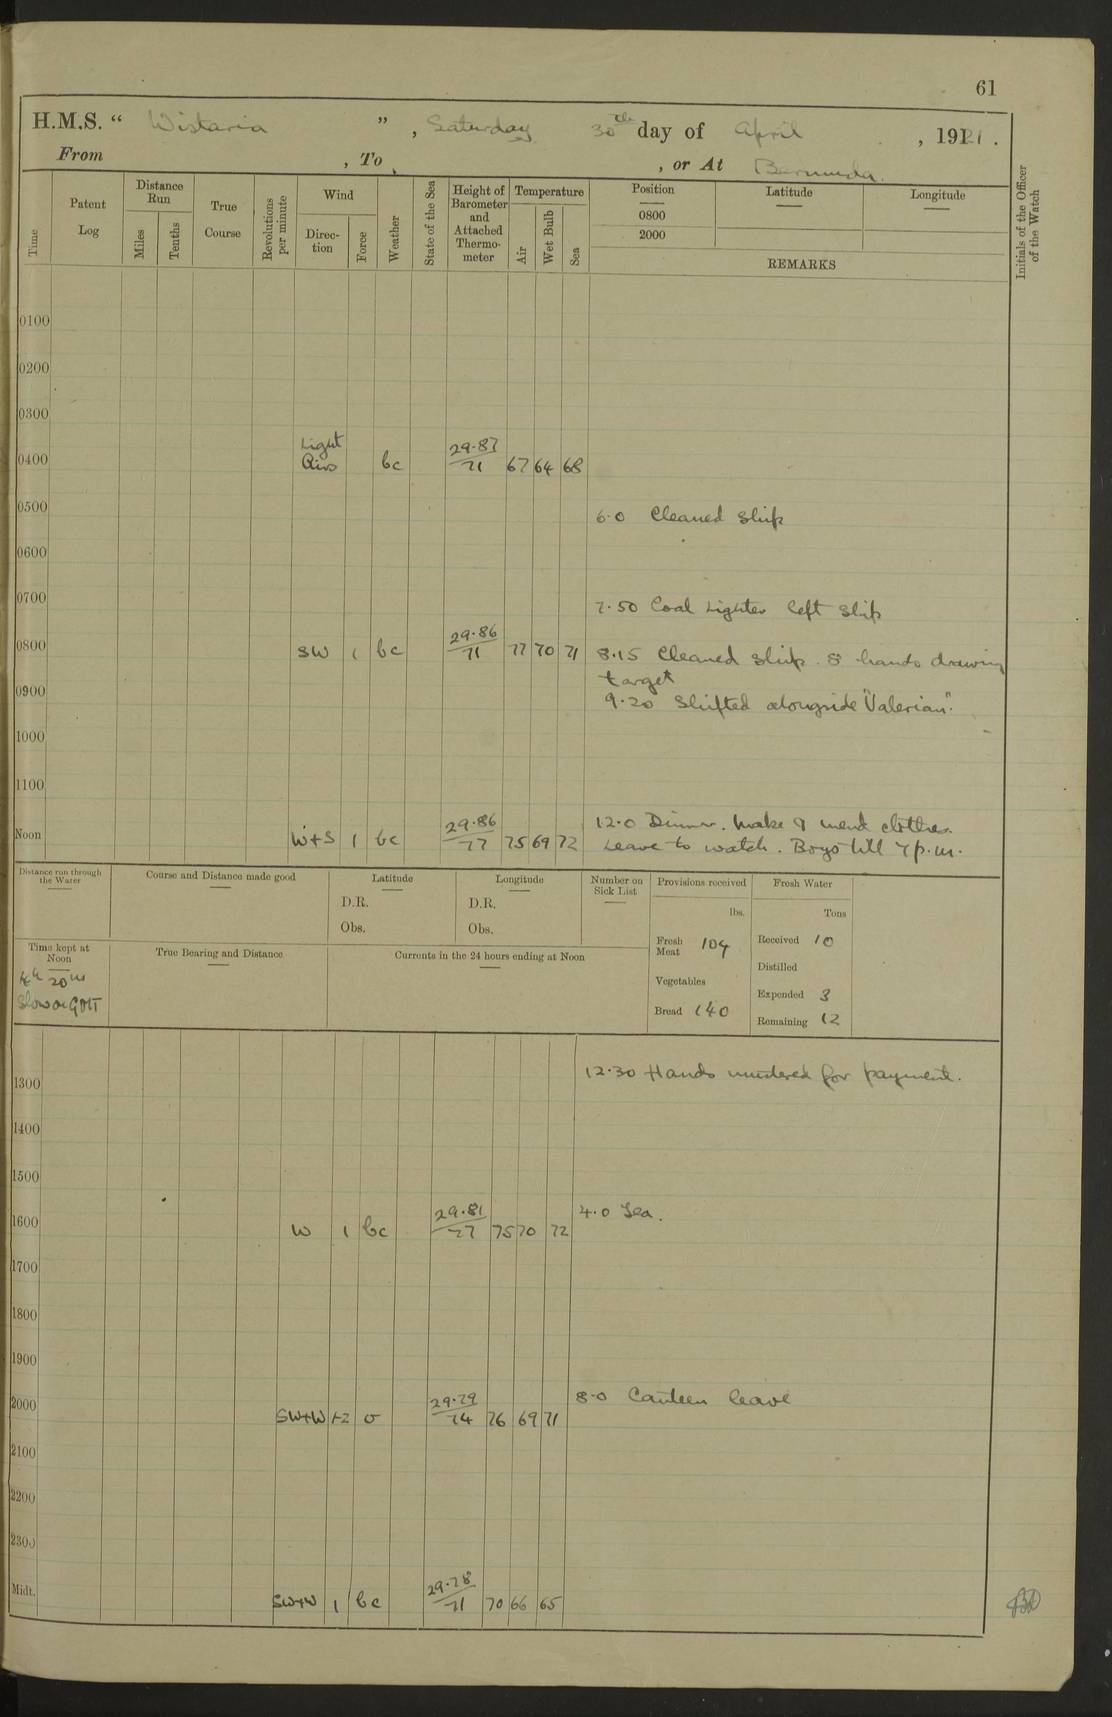 61
H.M.S. “ Wistaria ” , Saturday 30th day of April , 1921 .
From , To , or At Bermuda.
Time Patent Log Distance Run Miles Tenths True Course Revolutions per minute Wind Direc-tion Force Weather State of the Sea Height of Barometer and Attached Thermo-meter Temperature Air Wet Bulb Sea Position Latitude Longitude Initials of the Officer of the Watch
0800
2000
REMARKS
0100
0200
0300
0400 Light Airs bc 29.87/71 67 64 68
0500 6.0 Cleaned Ship
0600
0700 7.50 Coal Lighter left Ship
0800 SW 1 bc 29.86/71 77 70 71 8.15 Cleaned ship. 8 hands drawing
target
0900 9.20 Shifted alongside "Valerian".
1000
1100
12.0 Dinner. Make & mend clothes.
Noon W+S 1 bc 29.86/77 75 69 72 Leave to watch. Boys till 7 p.m.
Distance run through the Water Course and Distance made good Latitude Longitude Number on Sick List Provisions received Fresh Water
D.R. D.R. lbs. Tons
Obs. Obs.
Fresh Meat 104 Received 10
Time kept at Noon True Bearing and Distance Currents in the 24 hours ending at Noon
4h 20m
Slow on GMT
Vegetables Distilled
Expended 3
Bread 140 Remaining 12
12.30 Hands mustered for payment.
1300
1400
1500
1600 W 1 bc 29.81/77 75 70 72 4.0 Tea.
1700
1800
1900
2000 SW+W 1-2 o 29.79/74 76 69 71 8.0 Canteen leave
2100
2200
2300
Midt. SW+W 1 bc 29.78/71 70 66 65